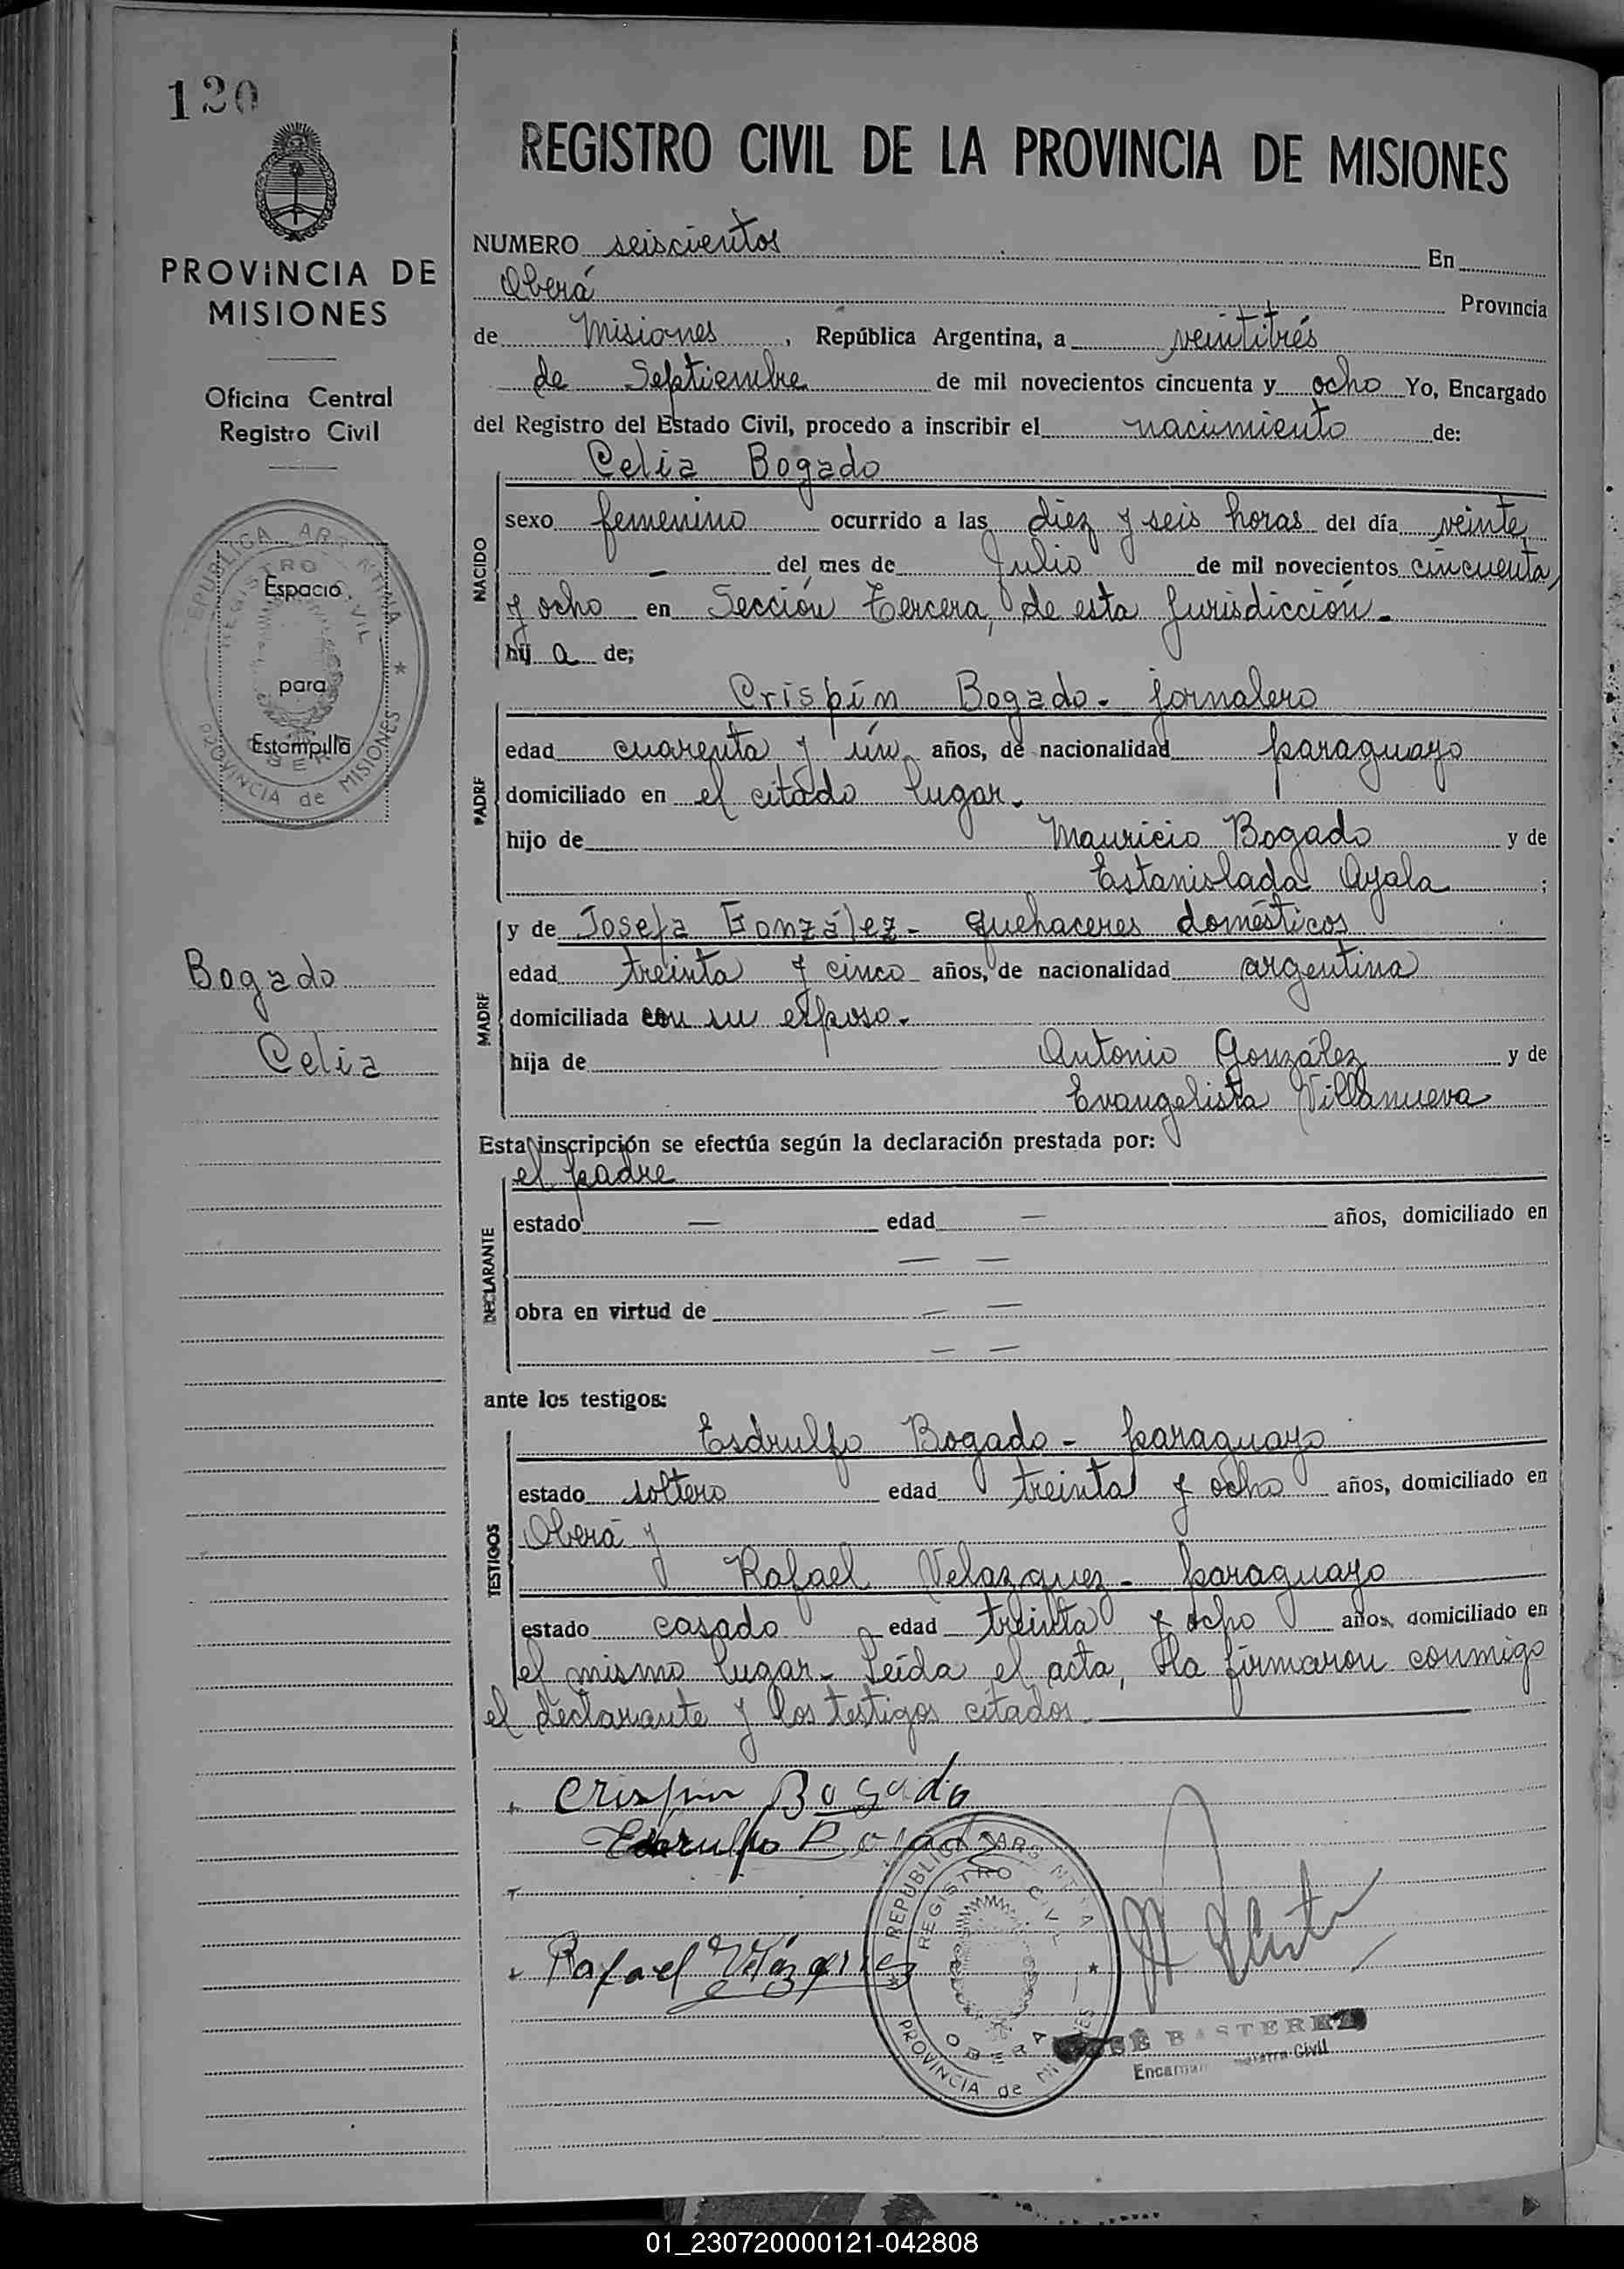 120
PROVINCIA DE
MISIONES
Oficina Central
Registro Civil
REPUBLICA ARGENTINA
REGISTRO CIVIL
Espacio
para
Estampilla
OBERA
PROVINCIA de MISIONES
Bogado
Celia
REGISTRO CIVIL DE LA PROVINCIA DE MISIONES
NUMERO seiscientos En
Oberá Provincia
de Misiones, República Argentina, a veintitrés
de Septiembre de mil novecientos cincuenta y ocho Yo, Encargado
del Registro del Estado Civil, procedo a inscribir el nacimiento de:
Celia Bogado
NACIDO
sexo femenino ocurrido a las diez y seis horas del día veinte
— del mes de Julio de mil novecientos cincuenta
y ocho en Sección Tercera, de esta Jurisdicción.-
hij a de;
Crispín Bogado - jornalero
PADRE
edad cuarenta y un años, de nacionalidad paraguayo
domiciliado en el citado lugar.
hijo de Mauricio Bogado y de
Estanislada Ayala ;
y de Josefa González - quehaceres domésticos
MADRE
edad treinta y cinco años, de nacionalidad argentina
domiciliada con su esposo.
hija de Antonio González y de
Evangelista Villanueva
Esta inscripción se efectúa según la declaración prestada por:
el padre
DECLARANTE
estado — edad — años, domiciliado en
— —
obra en virtud de — —
— —
ante los testigos:
Esdrulfo Bogado - paraguayo
TESTIGOS
estado soltero edad treinta y ocho años, domiciliado en
Oberá y
Rafael Velazquez - paraguayo
estado casado edad treinta y ocho años, domiciliado en
el mismo lugar.- Leída el acta, la firmaron conmigo
el declarante y los testigos citados.
Crispin Bogado
Bogado
Rafael
REPUBLICA ARGENTINA
REGISTRO CIVIL
OBERA
PROVINCIA de MISIONES
JOSÉ BASTERRA
Civil
01_230720000121-042808